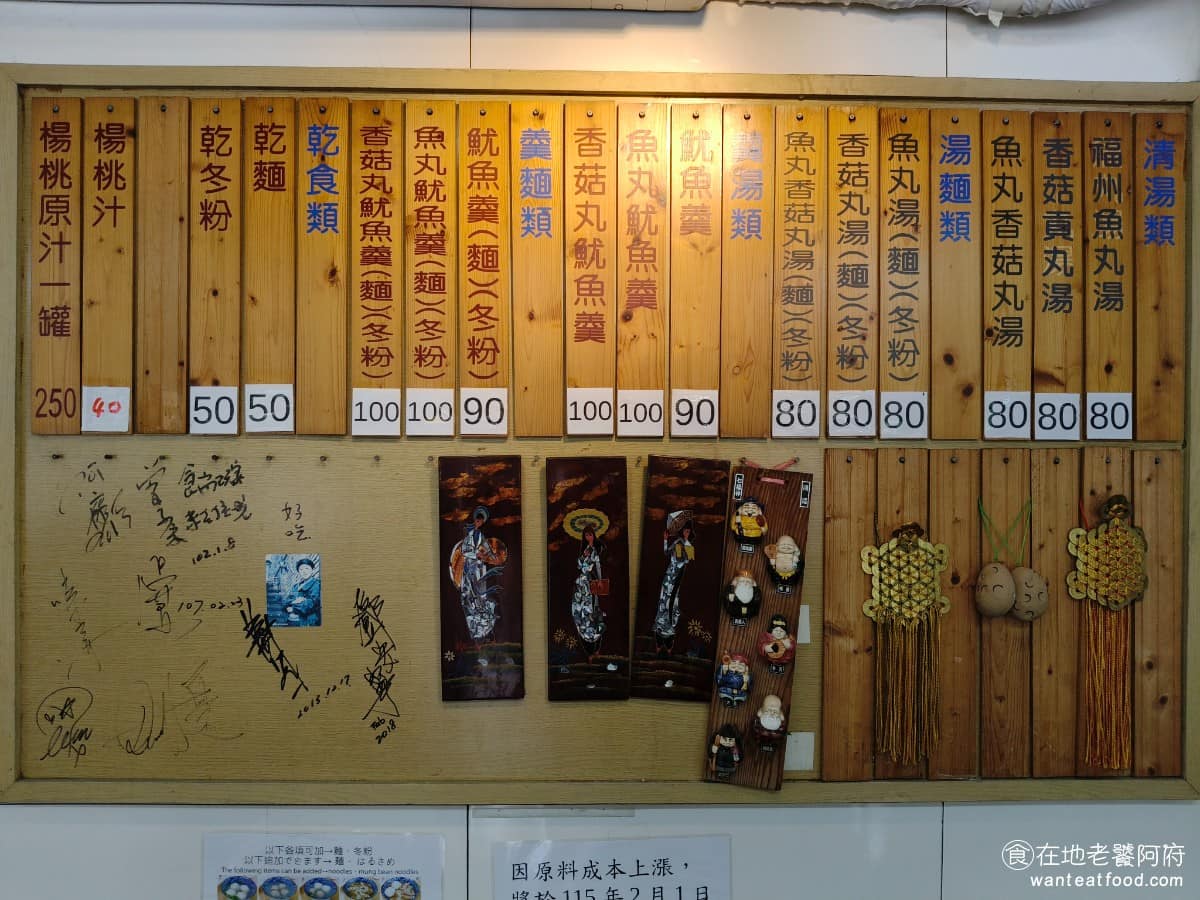 清湯類
福州魚丸湯
80
香菇貢丸湯
80
魚丸香菇丸湯
80
湯麵類
魚丸湯(麵)(冬粉)
80
香菇丸湯(麵)(冬粉)
80
魚丸香菇丸湯(麵)(冬粉)
80
羹湯類
魷魚羹
90
魚丸魷魚羹
100
香菇丸魷魚羹
100
羹麵類
魷魚羹(麵)(冬粉)
90
魚丸魷魚羹(麵)(冬粉)
100
香菇丸魷魚羹(麵)(冬粉)
100
乾食類
乾麵
50
乾冬粉
50
楊桃汁
40
楊桃原汁一罐
250
102.1.8
好吃
107.02.23
2015.10.17
Feb
2018
七福神
以下各項可加→麵、冬粉
以下追加できます→麺、はるさめ
The following items can be added→noodles、mung bean noodles
因原料成本上漲，
將於115年2月1日
食在地老饕阿府
wanteatfood.com